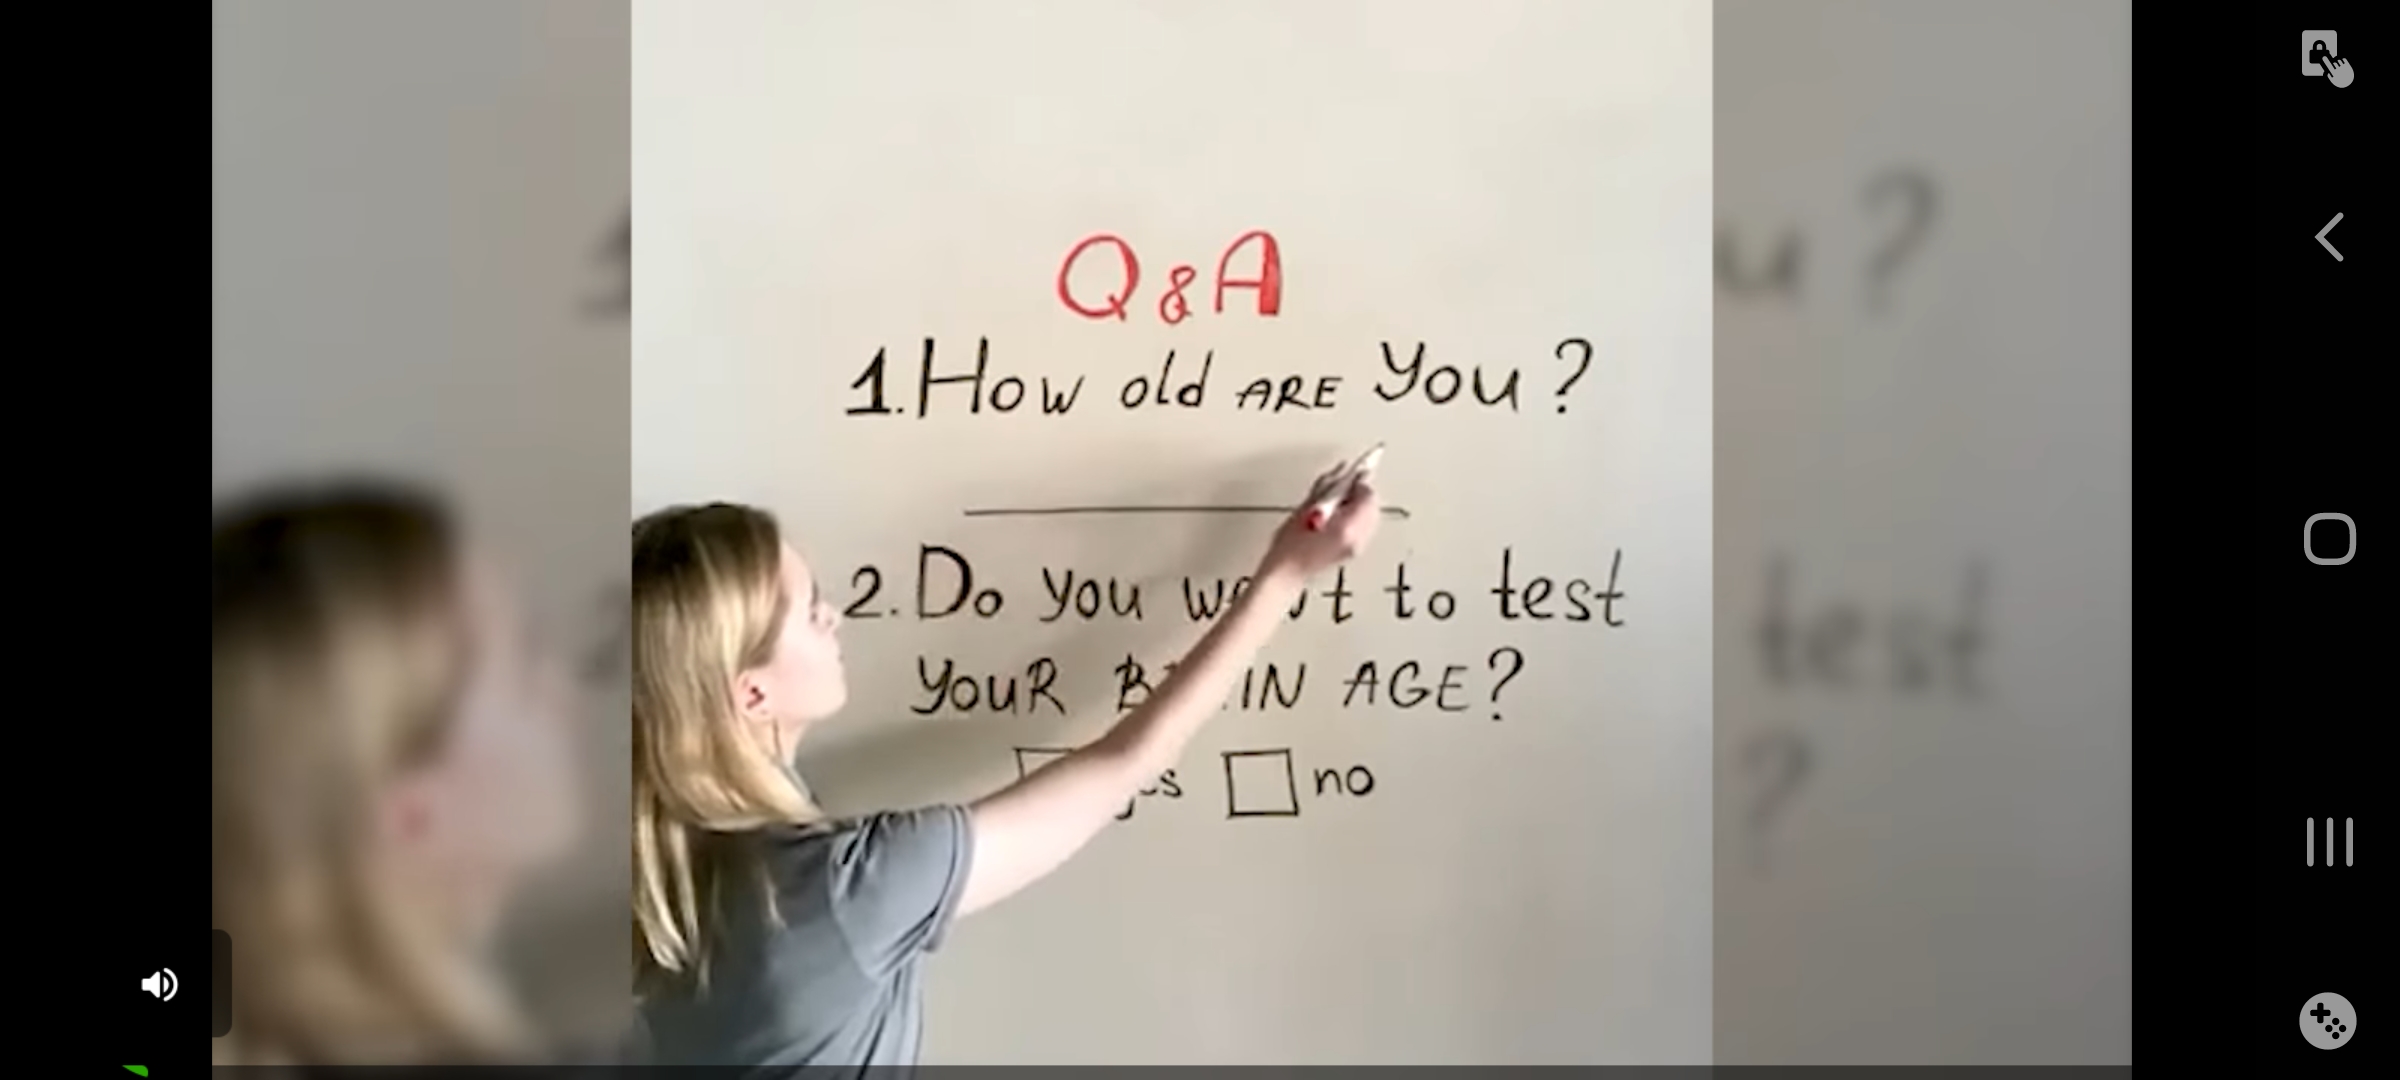 Q & A
1. How old ARE you?
2. Do you to test
YouR AGE?
no